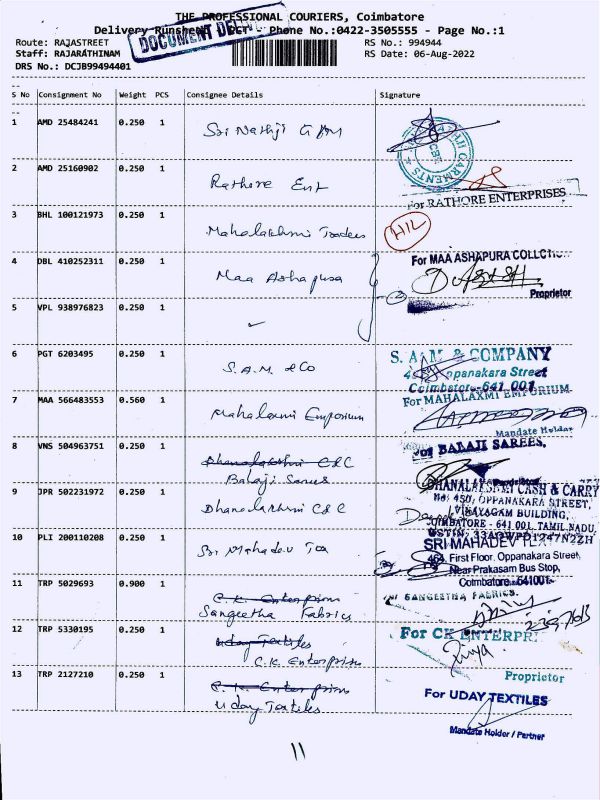 THE PROFESSIONAL COURIERS, Coimbatore
Delivery Phone No.:0422-3505555 - Page No.:1
DOCUMENT
Route: RAJASTREET RS No.: 994944
Staff: RAJARATHINAM RS Date: 06-Aug-2022
DRS No.: DCJB99494401
S No Consignment No Weight PCS Consignee Details Signature
1 AMD 25484241 0.250 1 Sri Nathji
GARMENTS
CBE
2 AMD 25160902 0.250 1 Rathore Ent
For RATHORE ENTERPRISES
3 BHL 100121973 0.250 1 Mahalakhmi Traders
HIL
4 DBL 410252311 0.250 1 Maa Ashapusa
For MAA ASHAPURA
Proprietor
5 VPL 938976823 0.250 1
6 PGT 6203495 0.250 1 S.A.M. & Co
S. A. M. & COMPANY
Oppanakara Street
Coimbatore-641 001
7 MAA 566483553 0.560 1 Mahalaxmi Emporium
For MAHALAXMI EMPORIUM.
Mandate Holder
8 VNS 504963751 0.250 1 C&C
Balaji Sarees
For BALAJI SAREES,
9 JPR 502231972 0.250 1 Dhanalakshmi C&C
DHANALAKSHMI CASH & CARRY
No: 450, OPPANAKARA STREET,
VINAYAGAM BUILDING,
COIMBATORE - 641 001. TAMIL NADU.
10 PLI 200110208 0.250 1 Sri Mahadev Tex
SRI MAHADEV TEX
First Floor, Oppanakara Street,
Near Prakasam Bus Stop,
Coimbatore-641001.
11 TRP 5029693 0.900 1 C.K. Enterprises
Sangeetha Fabrics
SANGEETHA FABRICS.
12 TRP 5330195 0.250 1 Uday Textiles
C.K. Enterprises
For CK ENTERPRI
Proprietor
13 TRP 2127210 0.250 1 C.K. Enterprises
Uday Textiles
For UDAY TEXTILES
Mandate Holder / Partner
11